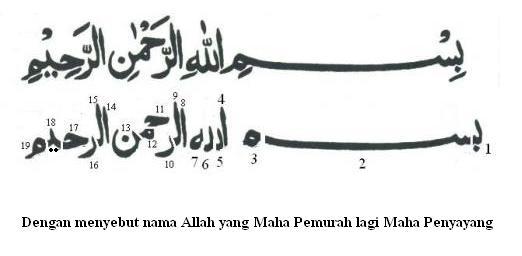 بِسْمِ اللهِ الرَّحْمٰنِ الرَّحِيْمِ
بسم الله الرحمن الرحيم
1 2 3 4 5 6 7 8 9 10 11 12 13 14 15 16 17 18 19
Dengan menyebut nama Allah yang Maha Pemurah lagi Maha Penyayang